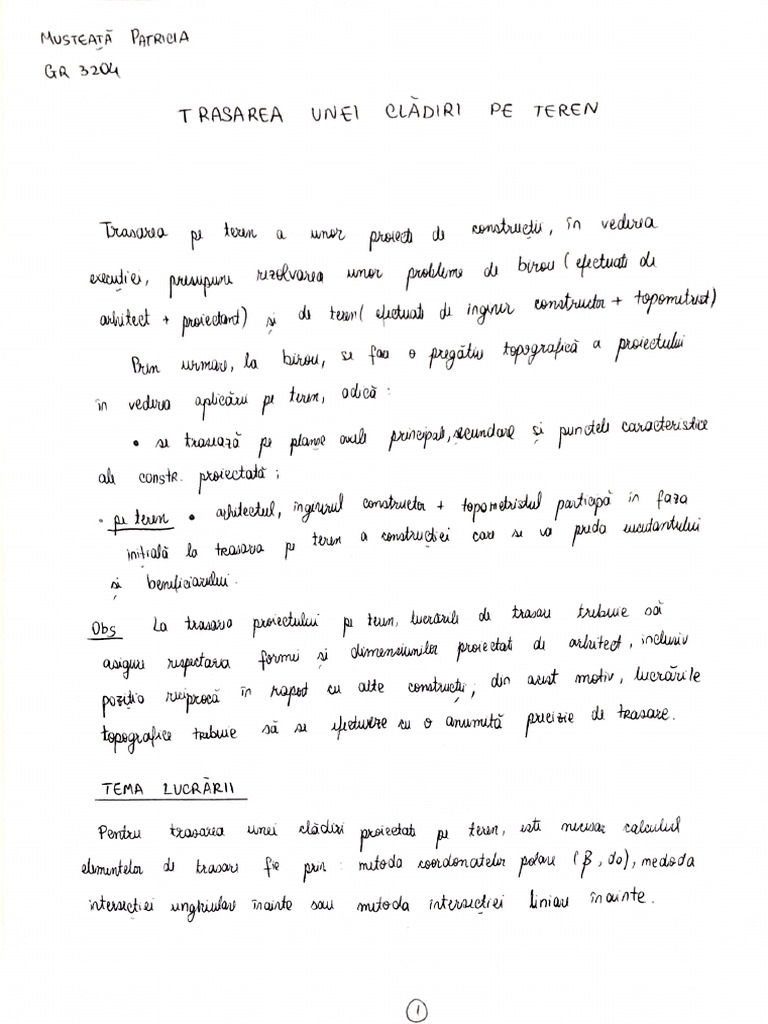 MUSTEAȚĂ PATRICIA
GR 3204
TRASAREA UNEI CLĂDIRI PE TEREN
Trasarea pe teren a unor proiecte de construcții, în vederea
execuției, presupune rezolvarea unor probleme de birou (efectuate de
arhitect + proiectant) și de teren (efectuate de inginer constructor + topometrist)
Prin urmare, la birou, se face o pregătire topografică a proiectului
în vederea aplicării pe teren, adică:
• se trasează pe planșe axele principale, secundare și punctele caracteristice
ale constr. proiectată;
• pe teren • arhitectul, inginerul constructor + topometristul participă în faza
inițială la trasarea pe teren a construcției care se va preda executantului
și beneficiarului.
Obs La trasarea proiectului pe teren, lucrările de trasare trebuie să
asigure respectarea formei și dimensiunilor proiectate de arhitect, inclusiv
poziția reciprocă în raport cu alte construcții; din acest motiv, lucrările
topografice trebuie să se efectueze cu o anumită precizie de trasare.
TEMA LUCRĂRII
Pentru trasarea unei clădiri proiectate pe teren, este necesar calculul
elementelor de trasare fie prin: metoda coordonatelor polare (β, do), medoda
intersecției unghiulare înainte sau metoda intersecției liniare înainte.
1